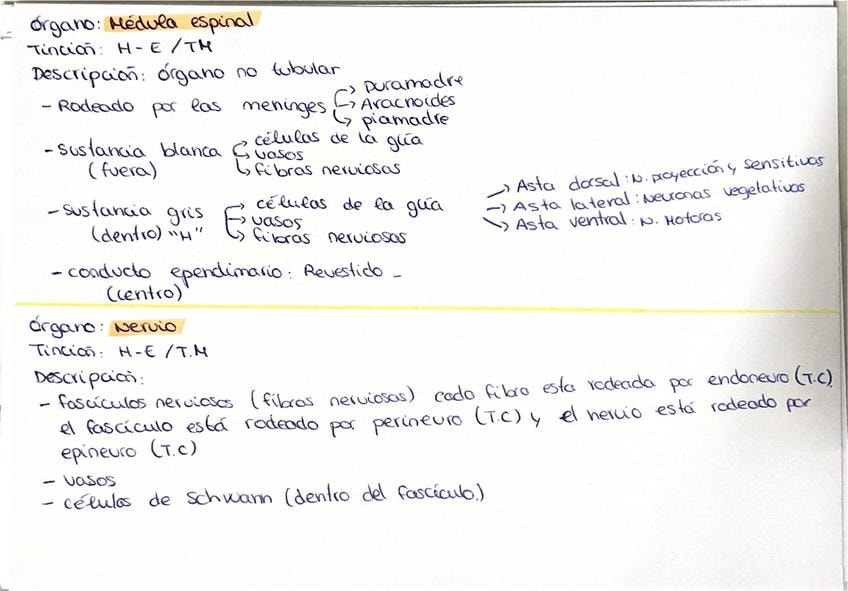 Órgano: Médula espinal
Tinción: H-E / TM
Descripción: órgano no tubular
- Rodeado por las meninges → Duramadre
→ Aracnoides
→ piamadre
- Sustancia blanca → células de la glía
(fuera) → vasos
→ fibras nerviosas
- Sustancia gris → células de la glía
(dentro) "H" → vasos
→ fibras nerviosos
→ Asta dorsal: N. proyección y sensitivas
→ Asta lateral: Neuronas vegetativas
→ Asta ventral: N. Motoras
- conducto ependimario: Revestido -
(centro)
Órgano: Nervio
Tinción: H-E / T.M
Descripción:
- fascículos nerviosos (fibras nerviosas) cada fibra esta rodeada por endoneuro (T.C),
el fascículo está rodeado por perineuro (T.C) y el nervio está rodeado por
epineuro (T.C)
- vasos
- células de Schwann (dentro del fascículo.)